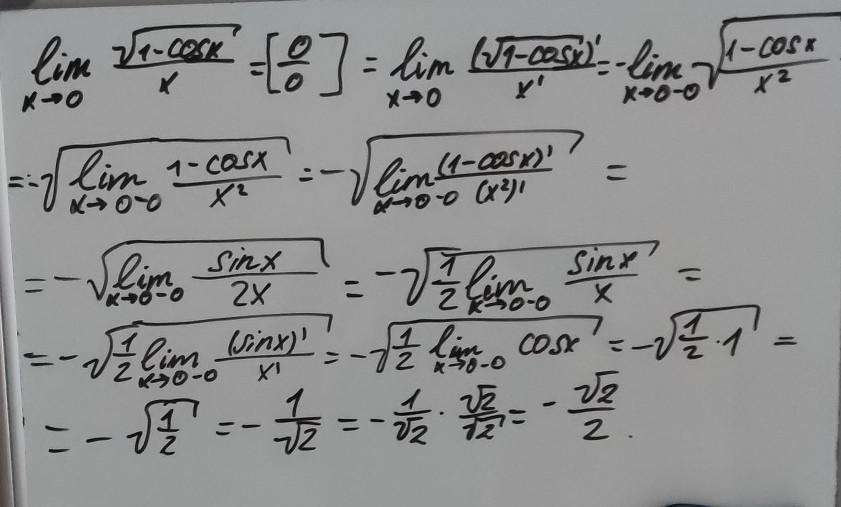 lim x→0 √(1-cosx)/x = [0/0] = lim x→0 (√(1-cosx))'/x' = -lim x→0-0 √((1-cosx)/x²)
=-√(lim x→0-0 (1-cosx)/x²) = -√(lim x→0-0 (1-cosx)'/(x²)') =
= -√(lim x→0-0 sinx/2x) = -√(1/2 lim x→0-0 sinx/x) =
= -√(1/2 lim x→0-0 (sinx)'/x') = -√(1/2 lim x→0-0 cosx) = -√(1/2 · 1) =
= -√(1/2) = -1/√2 = -1/√2 · √2/√2 = -√2/2.